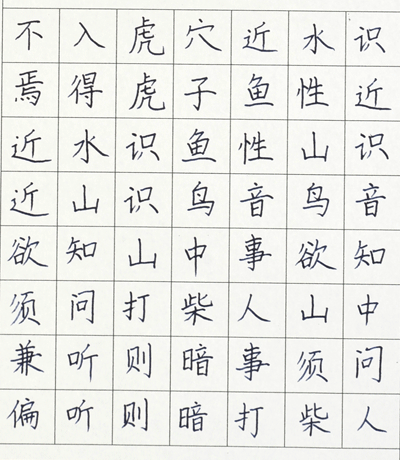 不入虎穴近水识
焉得虎子鱼性近
近水识鱼性山识
近山识鸟音鸟音
欲知山中事欲知
须问打柴人山中
兼听则暗事须问
偏听则暗打柴人